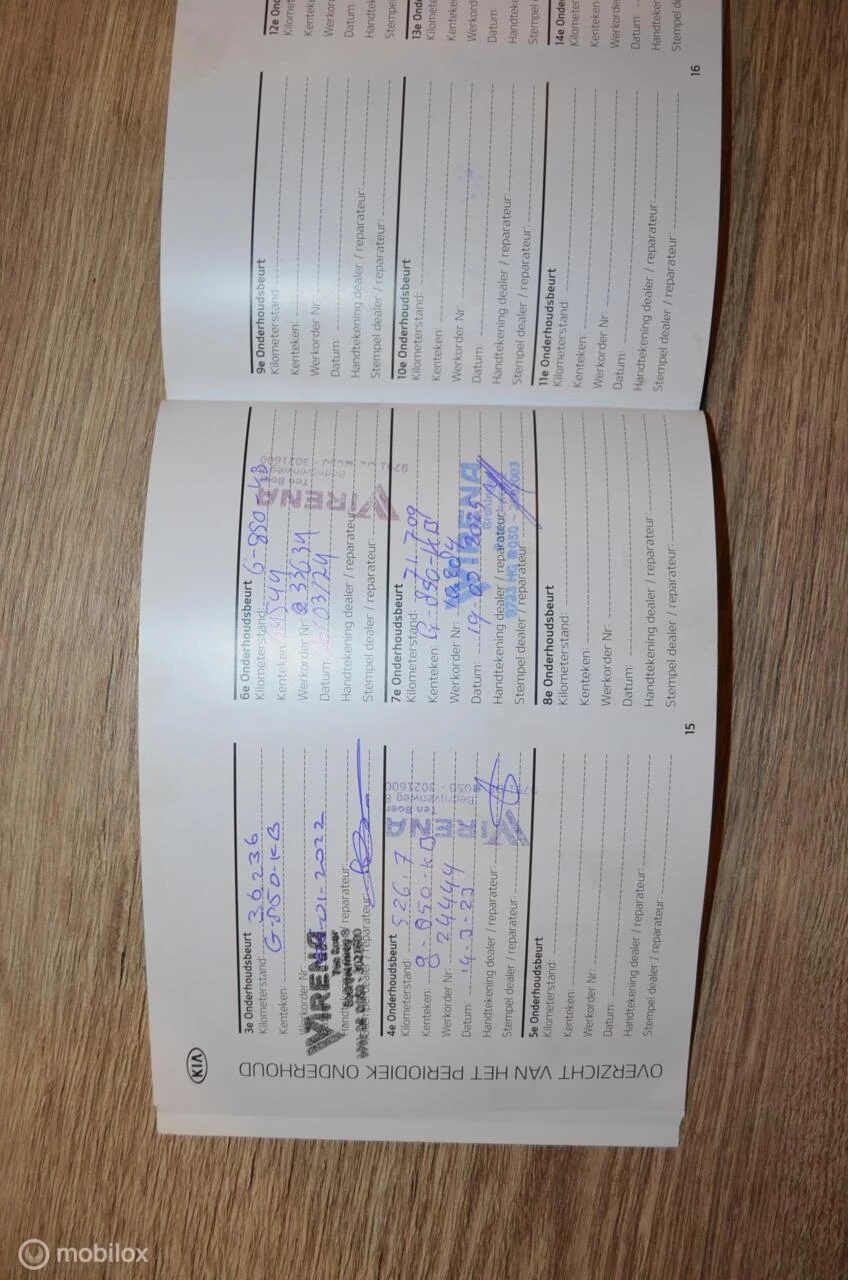 KIA
OVERZICHT VAN HET PERIODIEK ONDERHOUD
3e Onderhoudsbeurt
Kilometerstand: 36236
Kenteken: G-850-KB
Werkorder Nr:
21-2022
Handtekening dealer / reparateur:
Stempel dealer / reparateur:
VIRENA
Ten Boer
4e Onderhoudsbeurt
Kilometerstand: 526.7
Kenteken: G-850-KB
Werkorder Nr: 24444
Datum: 14-3-23
Handtekening dealer / reparateur:
Stempel dealer / reparateur:
VIRENA
Ten Boer
Bedrijvenweg 8
050 - 3021600
5e Onderhoudsbeurt
Kilometerstand:
Kenteken:
Werkorder Nr:
Datum:
Handtekening dealer / reparateur:
Stempel dealer / reparateur:
6e Onderhoudsbeurt
Kilometerstand: G-850-KB
Kenteken:
Werkorder Nr: 233634
Datum: /03/24
Handtekening dealer / reparateur:
Stempel dealer / reparateur:
VIRENA
Ten Boer
Bedrijvenweg
3021600
7e Onderhoudsbeurt
Kilometerstand: 71.709
Kenteken: G-850-KB
Werkorder Nr:
Datum: 2025
Handtekening dealer / reparateur:
Stempel dealer / reparateur:
VIRENA
9723 HG
8e Onderhoudsbeurt
Kilometerstand:
Kenteken:
Werkorder Nr:
Datum:
Handtekening dealer / reparateur:
Stempel dealer / reparateur:
15
9e Onderhoudsbeurt
Kilometerstand:
Kenteken:
Werkorder Nr:
Datum:
Handtekening dealer / reparateur:
Stempel dealer / reparateur:
10e Onderhoudsbeurt
Kilometerstand:
Kenteken:
Werkorder Nr:
Datum:
Handtekening dealer / reparateur:
Stempel dealer / reparateur:
11e Onderhoudsbeurt
Kilometerstand:
Kenteken:
Werkorder Nr:
Datum:
Handtekening dealer / reparateur:
Stempel dealer / reparateur:
12e On
Kilome
Kenteke
Werkor
Datum:
Handte
Stempe
13e Onde
Kilomete
Kenteken
Werkord
Datum:
Handtek
Stempel
14e Onder
Kilometer
Kenteken:
Werkorde
Datum:
Handteken
Stempel d
16
mobilox